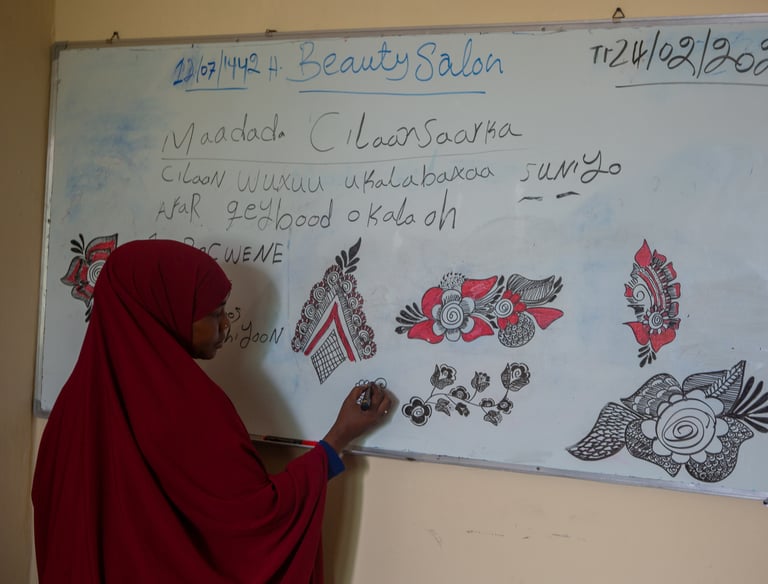 12/07/1442 H. Beauty Salon Tr 24/02/202
Maadada Cilaansaarka
CILAAN WUXUU UKALABAXAA SUNIYO
AFAR qeybood okala ah